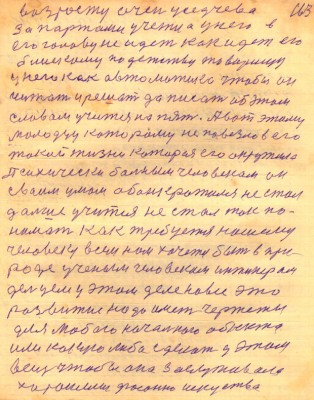 возрасту очен уседчева 663
за партами учетиа у него в
его голову не идет как идет его
близкому по детству товарищу
у него как автоматика чтобы он
читат и решат да писат об этом
словам учится на пят. А вот этому
молодцу которому не повезло в его
такой жизни которая его окружила
Психически болным человеком он
сваим умом обанкротилса не стал
далше учится не стал так по-
нимат как требуется нашему
человеку всем нам хочется быт в при-
роде ученым человеком инжинером
делцем у этом деле новые это
развитие надо имет чертежи
для любого начатого объекта
или какую либа зделат у этом
вещ чтобы она заслуживала
хорошими фасонно искуства